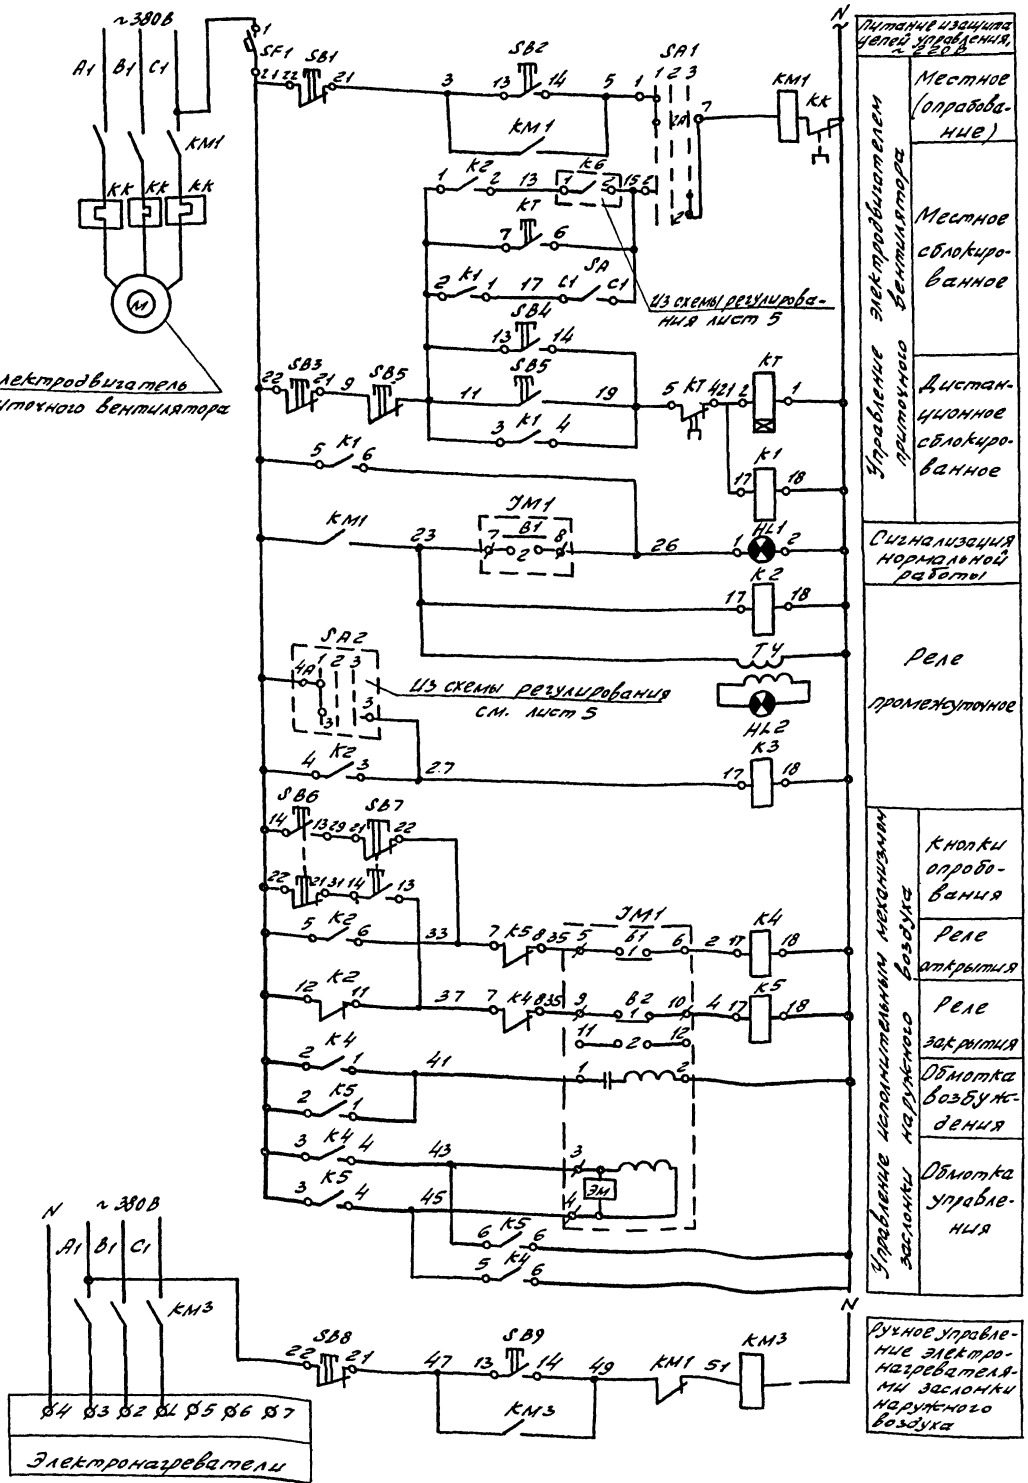 ~380В
А1 В1 С1
КМ1
КК КК КК
М
Электродвигатель
приточного вентилятора
1
SF1
21 22 SB1 21 3 13 SB2 14 5 1 SA1
1 2 3
2А 7 КМ1 КК N
КМ1
1 К2 2 13 1 К6 2 15 2
2
7 КТ 6
2 К1 1 17 С1 SA С1
Из схемы регулирова-
ния лист 5
13 SB4 14
22 SB3 21 9 SB5 11 SB5 19 5 КТ 4 21 2 КТ 1
3 К1 4
5 К1 6
17 К1 18
КМ1 23 7 В1 8 26 1 HL1 2
2
ЈМ1
17 К2 18
ТУ
HL2
SA2
4А 1 2 3
3 3
Из схемы регулирования
см. лист 5
4 К2 3 27 17 К3 18
14 SB6 13 29 21 SB7 22
22 21 31 14 13
5 К2 6 33 7 К5 8 35 5 В1 6 2 17 К4 18
1
ЈМ1
12 К2 11 37 7 К4 8 35 9 В2 10 4 17 К5 18
1
11 2 12
2 К4 1 41 1 2
2 К5 1
3 К4 4 43 3
ЭМ
3 К5 4 45 4
6 К5 6
5 К4 6
N
~380В
N А1 В1 С1
КМ3
22 SB8 21 47 13 SB9 14 49 КМ1 51 КМ3
КМ3
4 3 2 1 5 6 7
Электронагреватели
Питание и защита
цепей управления,
~220В
Управление электродвигателем
приточного вентилятора
Местное
(опробова-
ние)
Местное
сблокиро-
ванное
Дистан-
ционное
сблокиро-
ванное
Сигнализация
нормальной
работы
Реле
промежуточное
Управление исполнительным механизмом
заслонки наружного воздуха
Кнопки
опробо-
вания
Реле
открытия
Реле
закрытия
Обмотка
возбуж-
дения
Обмотка
управле-
ния
Ручное управле-
ние электро-
нагревателя-
ми заслонки
наружного
воздуха